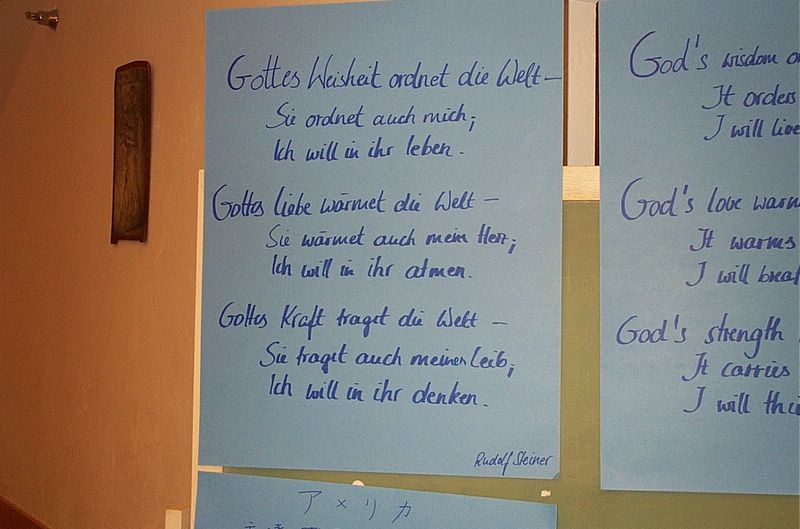 Gottes Weisheit ordnet die Welt –
Sie ordnet auch mich;
Ich will in ihr leben.
Gottes Liebe wärmet die Welt –
Sie wärmet auch mein Herz;
Ich will in ihr atmen.
Gottes Kraft traget die Welt –
Sie traget auch meinen Leib;
Ich will in ihr denken.
Rudolf Steiner
God's wisdom
It orders
I will live
God's love
It warms
I will
God's strength
It carries
I will
アメリカ